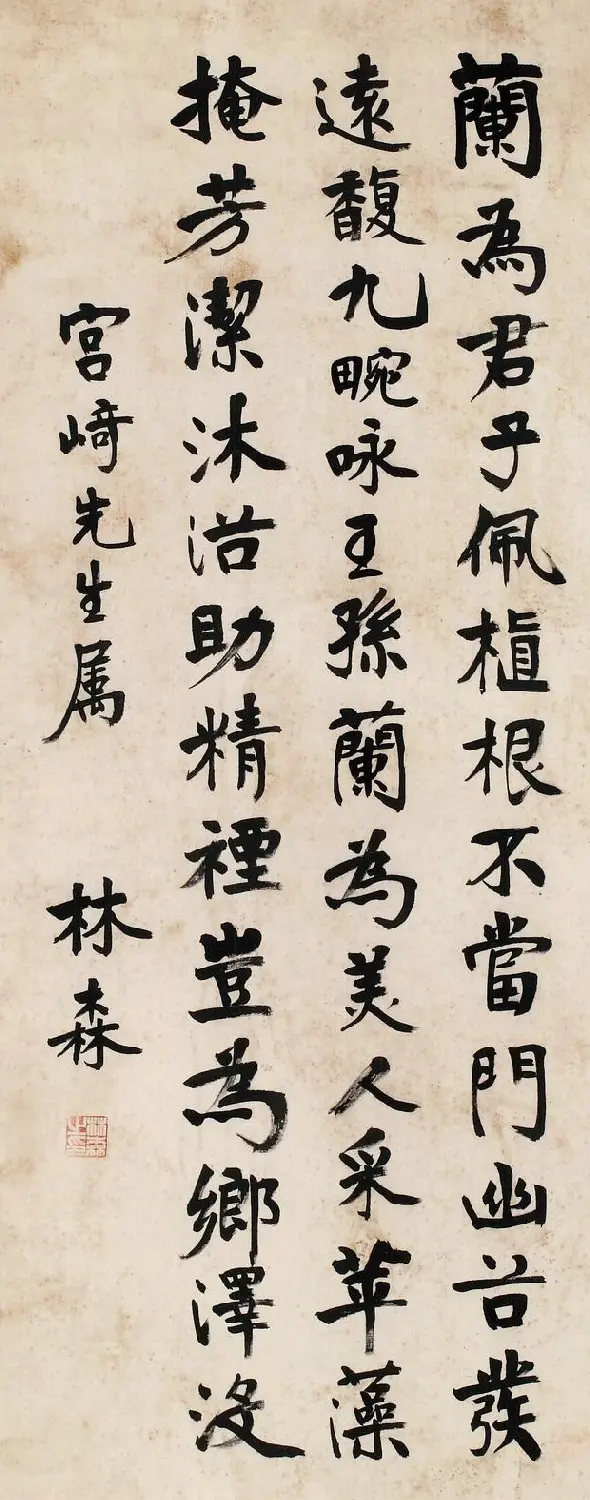 蘭為君子佩植根不當門幽谷發
遠馥九畹咏王孫蘭為美人采苹藻
掩芳潔沐浴助精禋豈為鄉澤沒
宮崎先生属 林森
林森之印